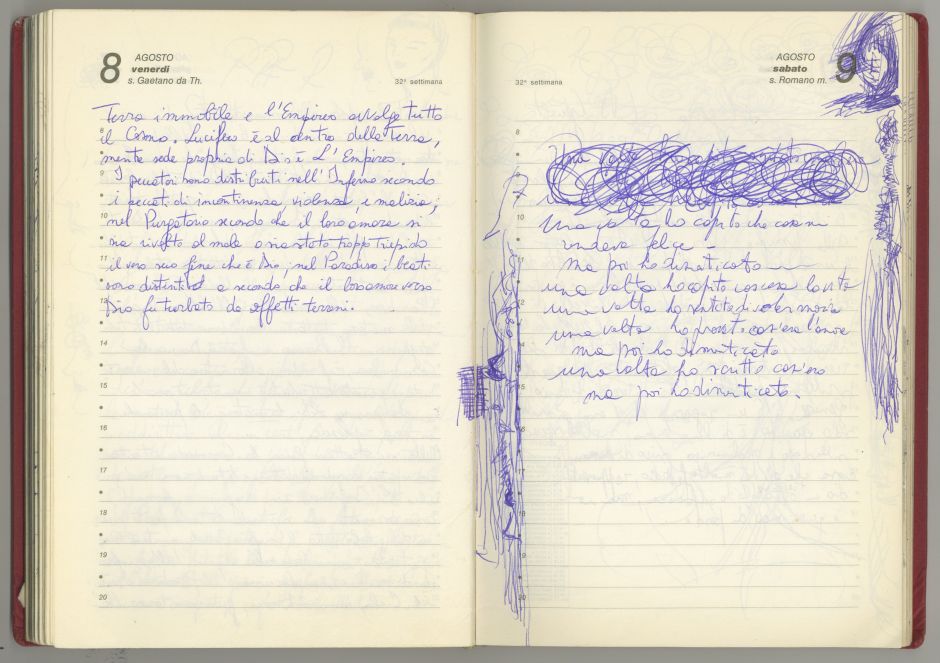 8
AGOSTO
venerdì
s. Gaetano da Th.
32ª settimana
Terra immobile e l'Empireo avvolge tutto
il Cosmo. Lucifero è al centro della terra,
mentre sede propria di Dio è L'Empireo.
I peccatori sono distribuiti nell'Inferno secondo
i peccati di incontinenza violenza, e malizia;
nel Purgatorio secondo che il loro amore si
sia rivolto al male o sia stato troppo tiepido
il vero suo fine che è Dio, nel Paradiso i beati
sono distinti a secondo che il loro amore verso
Dio fu turbato da affetti terreni.
8
9
10
11
12
13
14
15
16
17
18
19
20
32ª settimana
AGOSTO
sabato
s. Romano m.
9
Una volta ho capito
una volta ho capito che cosa mi
rendeva felice –
ma poi ho dimenticato
una volta ho capito cos'era la vita
una volta ho sentito di voler morire
una volta ho provato cos'era l'amore
ma poi ho dimenticato
una volta ho scritto cos'ero
ma poi ho dimenticato.
8
10
11
14
15
16
17
18
19
20